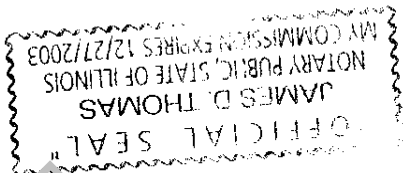 OFFICIAL SEAL"
JAMES D. THOMAS
NOTARY PUBLIC, STATE OF ILLINOIS
MY COMMISSION EXPIRES 12/27/2003